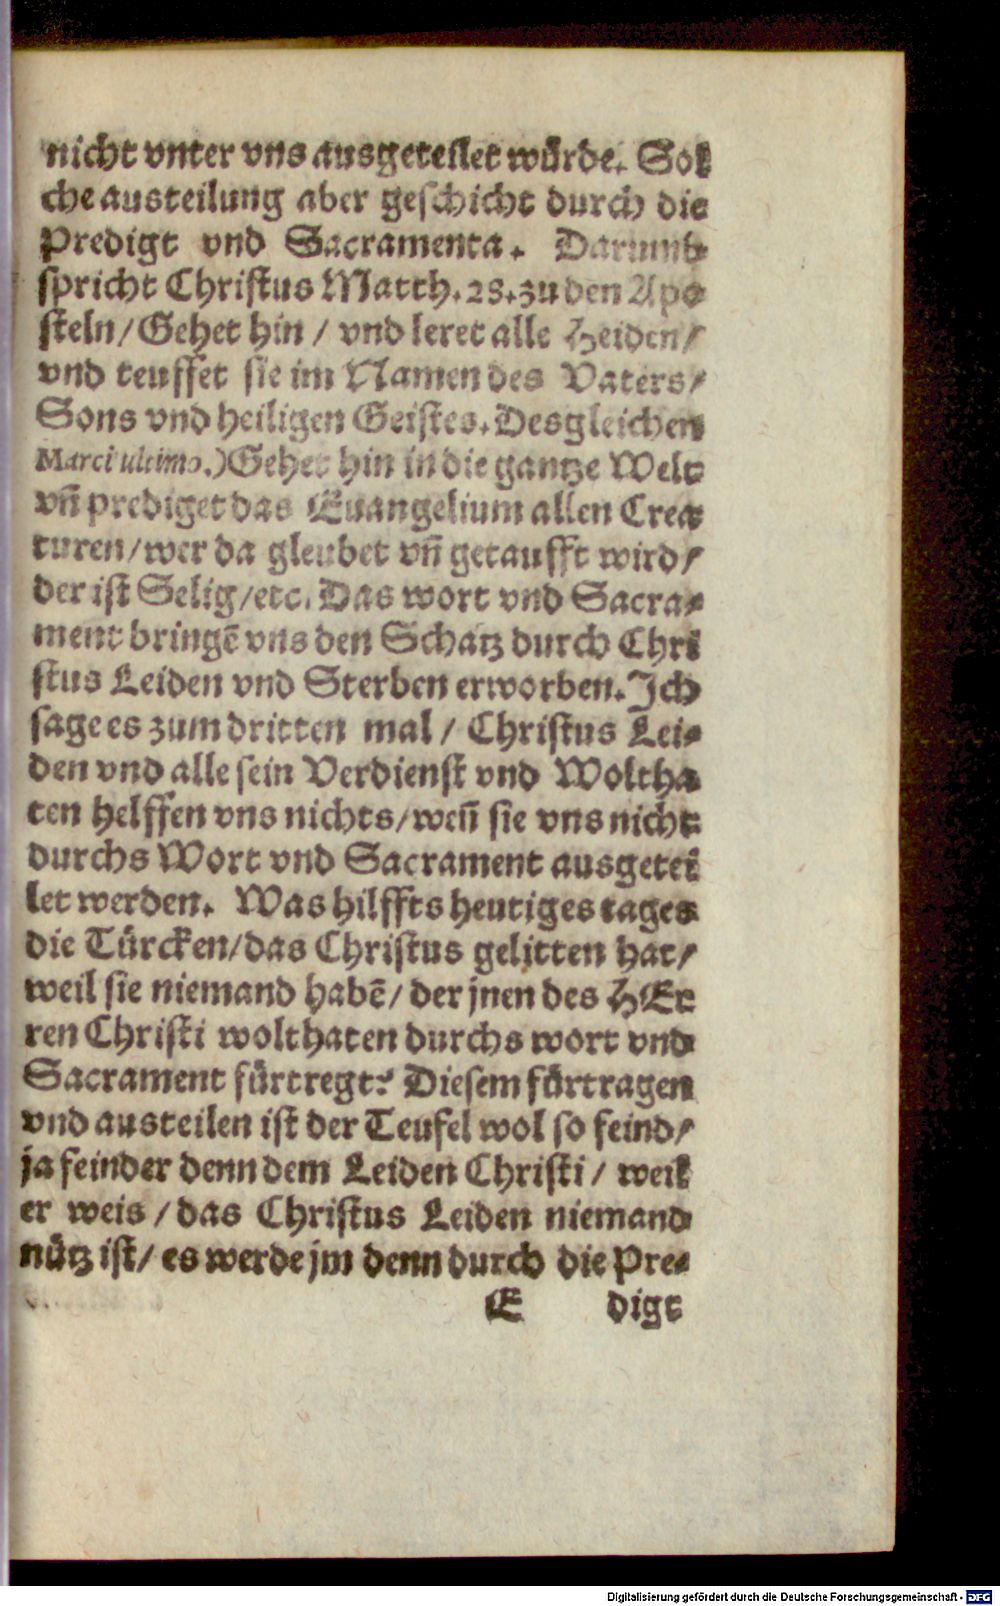 nicht vnter vns ausgeteilet würde. Sol
che austeilung aber geschicht durch die
Predigt vnd Sacramenta. Darumb
spricht Christus Matth. 28. zu den Apo
steln/ Gehet hin / vnd leret alle Heiden/
vnd teuffet sie im Namen des Vaters/
Sons vnd heiligen Geistes. Desgleichen
Marci ultimo.) Gehet hin in die gantze Welt
vñ prediget das Euangelium allen Crea
turen/ wer da gleubet vñ getaufft wird/
der ist Selig/ etc. Das wort vnd Sacra-
ment bringẽ vns den Schatz durch Chri
stus Leiden vnd Sterben erworben. Ich
sage es zum dritten mal / Christus Lei-
den vnd alle sein Verdienst vnd Woltha
ten helffen vns nichts/ weñ sie vns nicht
durchs Wort vnd Sacrament ausgetei
let werden. Was hilffts heutiges tages
die Türcken/ das Christus gelitten hat/
weil sie niemand habẽ/ der jnen des HEr
ren Christi wolthaten durchs wort vnd
Sacrament fürtregt? Diesem fürtragen
vnd austeilen ist der Teufel wol so feind/
ja feinder denn dem Leiden Christi / weil
er weis / das Christus Leiden niemand
nütz ist/ es werde jm denn durch die Pre-
E digt
Digitalisierung gefördert durch die Deutsche Forschungsgemeinschaft - DFG